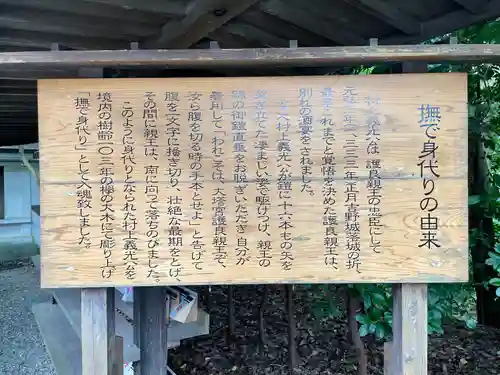 撫で身代りの由来
村上義光公は護良親王の忠臣にして
元弘三年(一三三三年)正月吉野城落城の折、
最早これまでと覚悟を決めた護良親王は、
別れの酒宴をされました。
村上義光公が鎧に十六本もの矢を
突き立てた凄まじい姿で駆けつけ、親王の
錦の御鎧直垂をお脱ぎいただき自分が
着用して「われこそは、大塔宮護良親王ぞ、
汝ら腹を切る時の手本とせよ」と告げて
腹を一文字に掻き切り、壮絶な最期をとげ、
その間に親王は、南に向って落ちのびました。
このように身代りとなられた村上義光公を
境内の樹齢一〇三年の欅の大木にて彫り上げ
「撫で身代り」として入魂致しました。